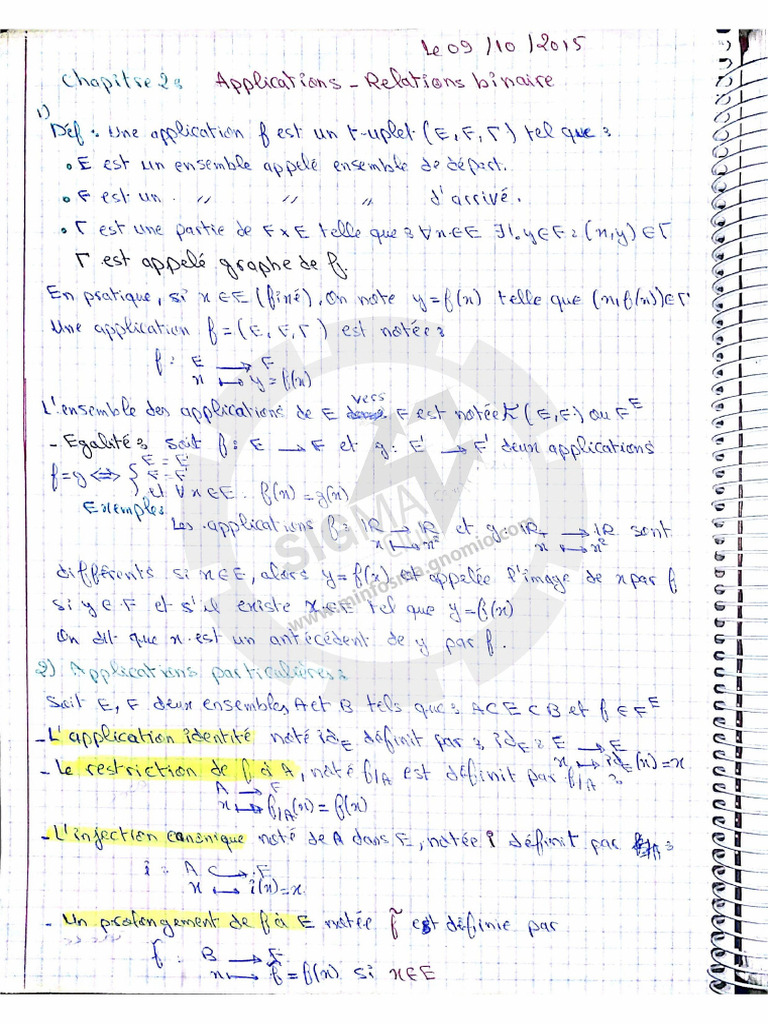 Le 09/10/2015
Chapitre 2: Applications - Relations binaire
1)
Déf : Une application f est un t-uplet (E, F, Γ) tel que :
• E est un ensemble appelé ensemble de départ.
• F est un " " " d'arrivé.
• Γ est une partie de F×E telle que : ∀x∈E ∃!y∈F : (x,y)∈Γ
Γ est appelé graphe de f.
En pratique, si x∈E (fixé), On note y=f(x) telle que (x,f(x))∈Γ
Une application f=(E,F,Γ) est notée :
f : E → F
x ↦ y=f(x)
L'ensemble des applications de E vers F est notée (E,F) ou F^E
- Egalité : Soit f : E → F et g : E' → F' deux applications
f=g ⇔ { E = E'
F = F'
et ∀x∈E. f(x)=g(x)
Exemples
Les applications f : IR → IR et g : IR+ → IR sont
x ↦ x² x ↦ x²
différents si x∈E, alors y=f(x) est appelée l'image de x par f
si y∈F et s'il existe x∈E tel que y=f(x)
On dit que x est un antécédent de y par f.
2) Applications particulières :
Soit E, F deux ensembles, A et B tels que : A⊂E⊂B et f∈F^E
- L'application identité noté id_E définit par : id_E : E → E
x ↦ id_E(x)=x
- Le restriction de f à A, noté f/A est définit par f/A :
A → F
x ↦ f/A(x) = f(x)
- L'injection canonique noté de A dans E, notée i définit par :
i : A ↪ E
x ↦ i(x)=x
- Un prolongement de f à E notée f̃ est définie par
f̃ : B → F
x ↦ f̃ = f(x) si x∈E
SIGMA
www.minfosigma.gnomio.com